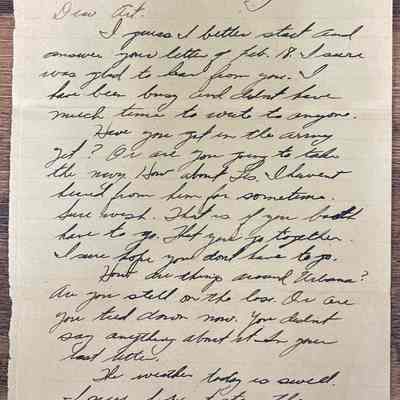 Dear Art.
I guess I better start and
answer your letter of Feb. 18. I sure
was glad to hear from you. I
have been busy and didnt have
much time to write to anyone.
Have you got in the army
yet? Or are you going to take
the navy. How about Les. I havent
heard from him for sometime.
Sure wish. That is if you both
have to go. That you go together.
I sure hope you dont have to go.
How are things around Urbana?
Are you still on the lose. Or are
you tied down now. You didnt
say anything about it in your
last letter.
The weather today is swell.